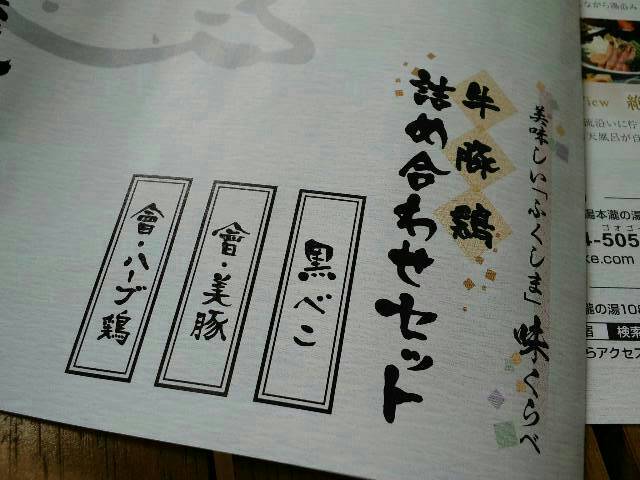 美味しい「ふくしま」味くらべ
牛豚鶏
詰め合わせセット
黒べこ
會・美豚
會・ハーブ鶏
ながら鶏
view
流沿いに佇
天風呂が自
湯本瀧の湯
ゴオゴ
4-505
ke.com
瀧の湯108
検索
らアクセス